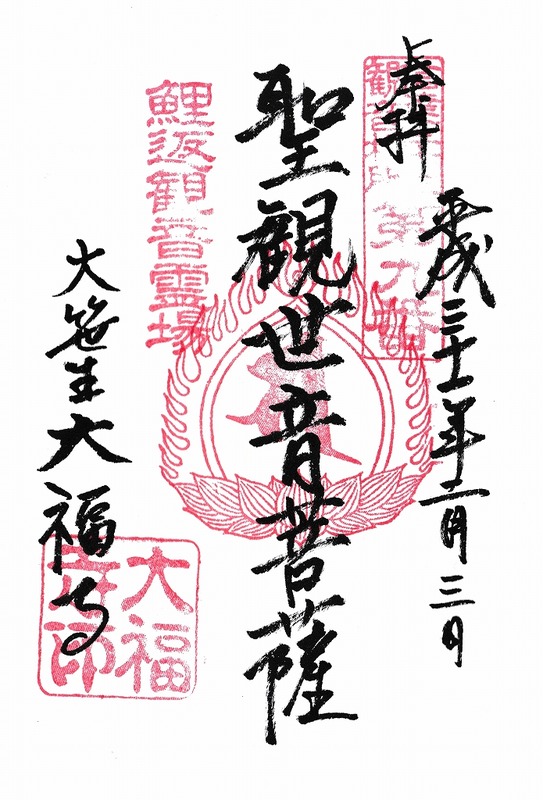 奉拝
平成三十一年二月三日
第九番
聖観世音菩薩
鯉返観音霊場
大笹生大福寺
大福
寺印